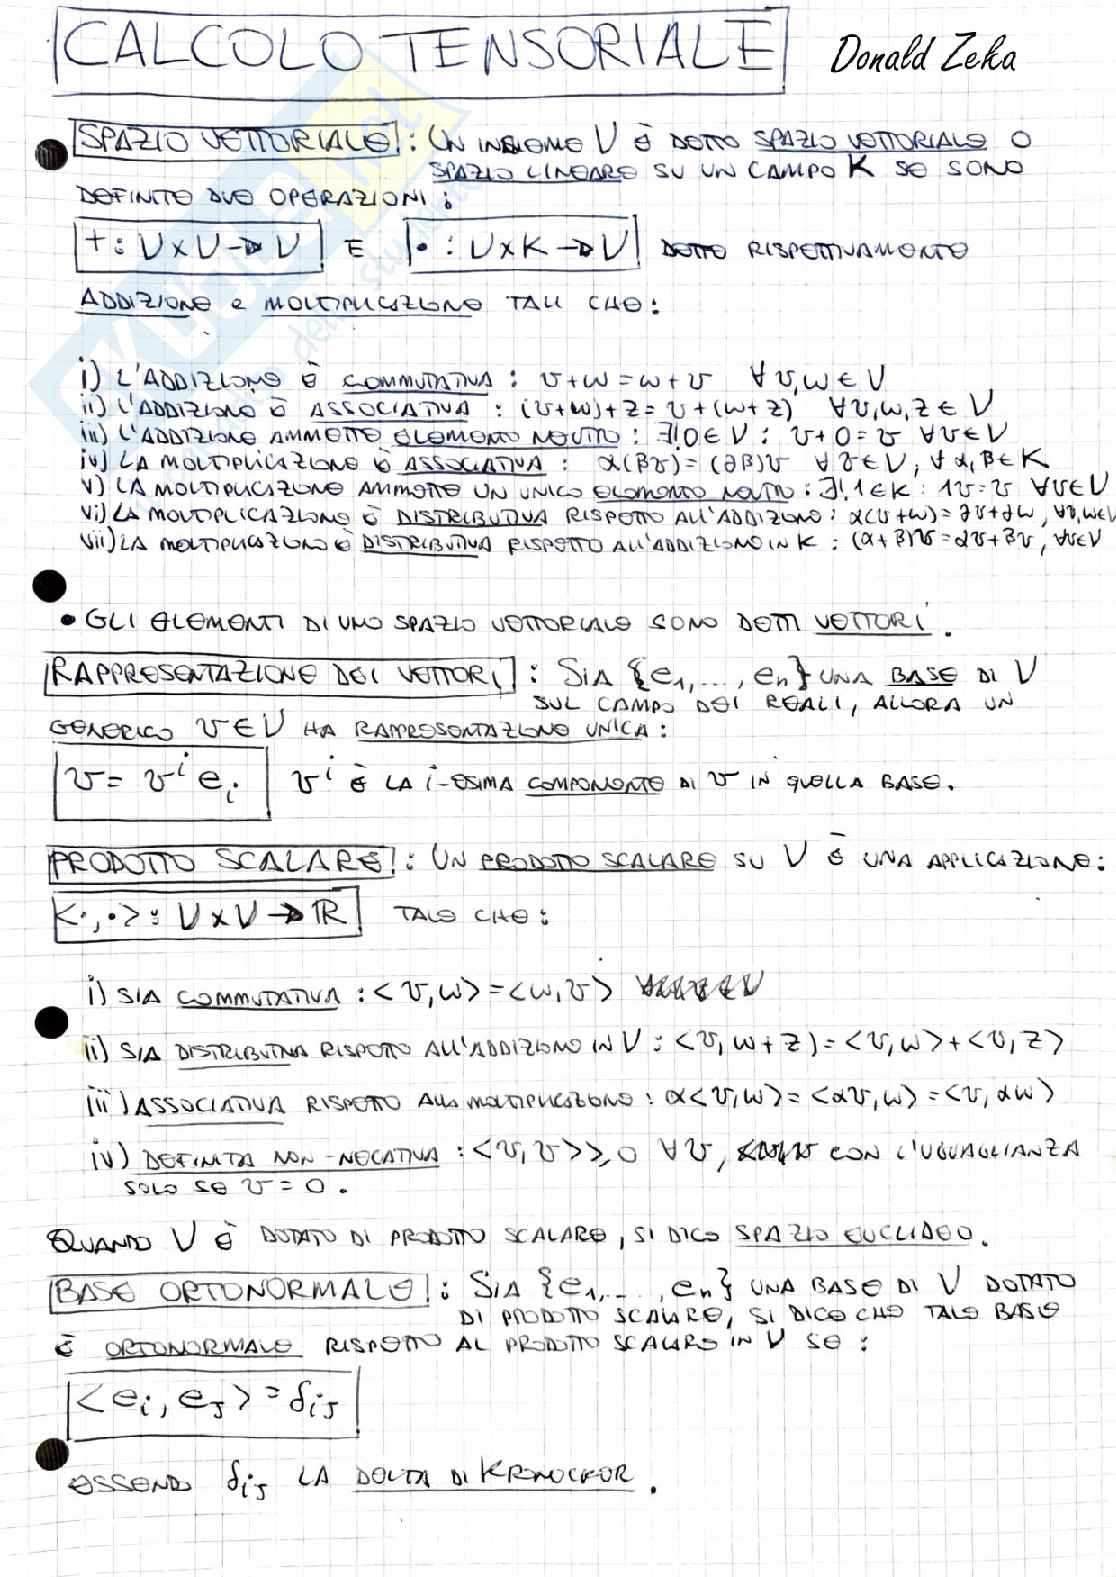 CALCOLO TENSORIALE
Donald Zeka
SPAZIO VETTORIALE: UN INSIEME V È DETTO SPAZIO VETTORIALE O
SPAZIO LINEARE SU UN CAMPO K SE SONO
DEFINITE DUE OPERAZIONI:
+: V×V→V E •: V×K→V DETTE RISPETTIVAMENTE
ADDIZIONE e MOLTIPLICAZIONE TALI CHE:
i) L'ADDIZIONE È COMMUTATIVA: v+w=w+v ∀v,w∈V
ii) L'ADDIZIONE È ASSOCIATIVA: (v+w)+z=v+(w+z) ∀v,w,z∈V
iii) L'ADDIZIONE AMMETTE ELEMENTO NEUTRO: ∃!0∈V: v+0=v ∀v∈V
iv) LA MOLTIPLICAZIONE È ASSOCIATIVA: α(βv)=(αβ)v ∀v∈V, ∀α,β∈K
v) LA MOLTIPLICAZIONE AMMETTE UN UNICO ELEMENTO NEUTRO: ∃!1∈K: 1v=v ∀v∈V
vi) LA MOLTIPLICAZIONE È DISTRIBUTIVA RISPETTO ALL'ADDIZIONE: α(v+w)=αv+αw, ∀v,w∈V
vii) LA MOLTIPLICAZIONE È DISTRIBUTIVA RISPETTO ALL'ADDIZIONE IN K: (α+β)v=αv+βv, ∀v∈V
• GLI ELEMENTI DI UNO SPAZIO VETTORIALE SONO DETTI VETTORI.
RAPPRESENTAZIONE DEI VETTORI: SIA {e₁,..., eₙ} UNA BASE DI V
SUL CAMPO DEI REALI, ALLORA UN
GENERICO v∈V HA RAPPRESENTAZIONE UNICA:
v= vⁱ eᵢ vⁱ È LA i-ESIMA COMPONENTE DI v IN QUELLA BASE.
PRODOTTO SCALARE: UN PRODOTTO SCALARE SU V È UNA APPLICAZIONE:
<·,·>: V×V→ℝ TALE CHE:
i) SIA COMMUTATIVA: <v,w>=<w,v>
ii) SIA DISTRIBUTIVA RISPETTO ALL'ADDIZIONE IN V: <v,w+z>=<v,w>+<v,z>
iii) ASSOCIATIVA RISPETTO ALLA MOLTIPLICAZIONE: α<v,w>=<αv,w>=<v,αw>
iv) DEFINITA NON-NEGATIVA: <v,v>≥0 ∀v, CON L'UGUAGLIANZA
SOLO SE v=0.
QUANDO V È DOTATO DI PRODOTTO SCALARE, SI DICE SPAZIO EUCLIDEO.
BASE ORTONORMALE: SIA {e₁,..., eₙ} UNA BASE DI V DOTATO
DI PRODOTTO SCALARE, SI DICE CHE TALE BASE
È ORTONORMALE RISPETTO AL PRODOTTO SCALARE IN V SE:
<eᵢ,eⱼ>=δᵢⱼ
ESSENDO δᵢⱼ LA DELTA DI KRONECKER.